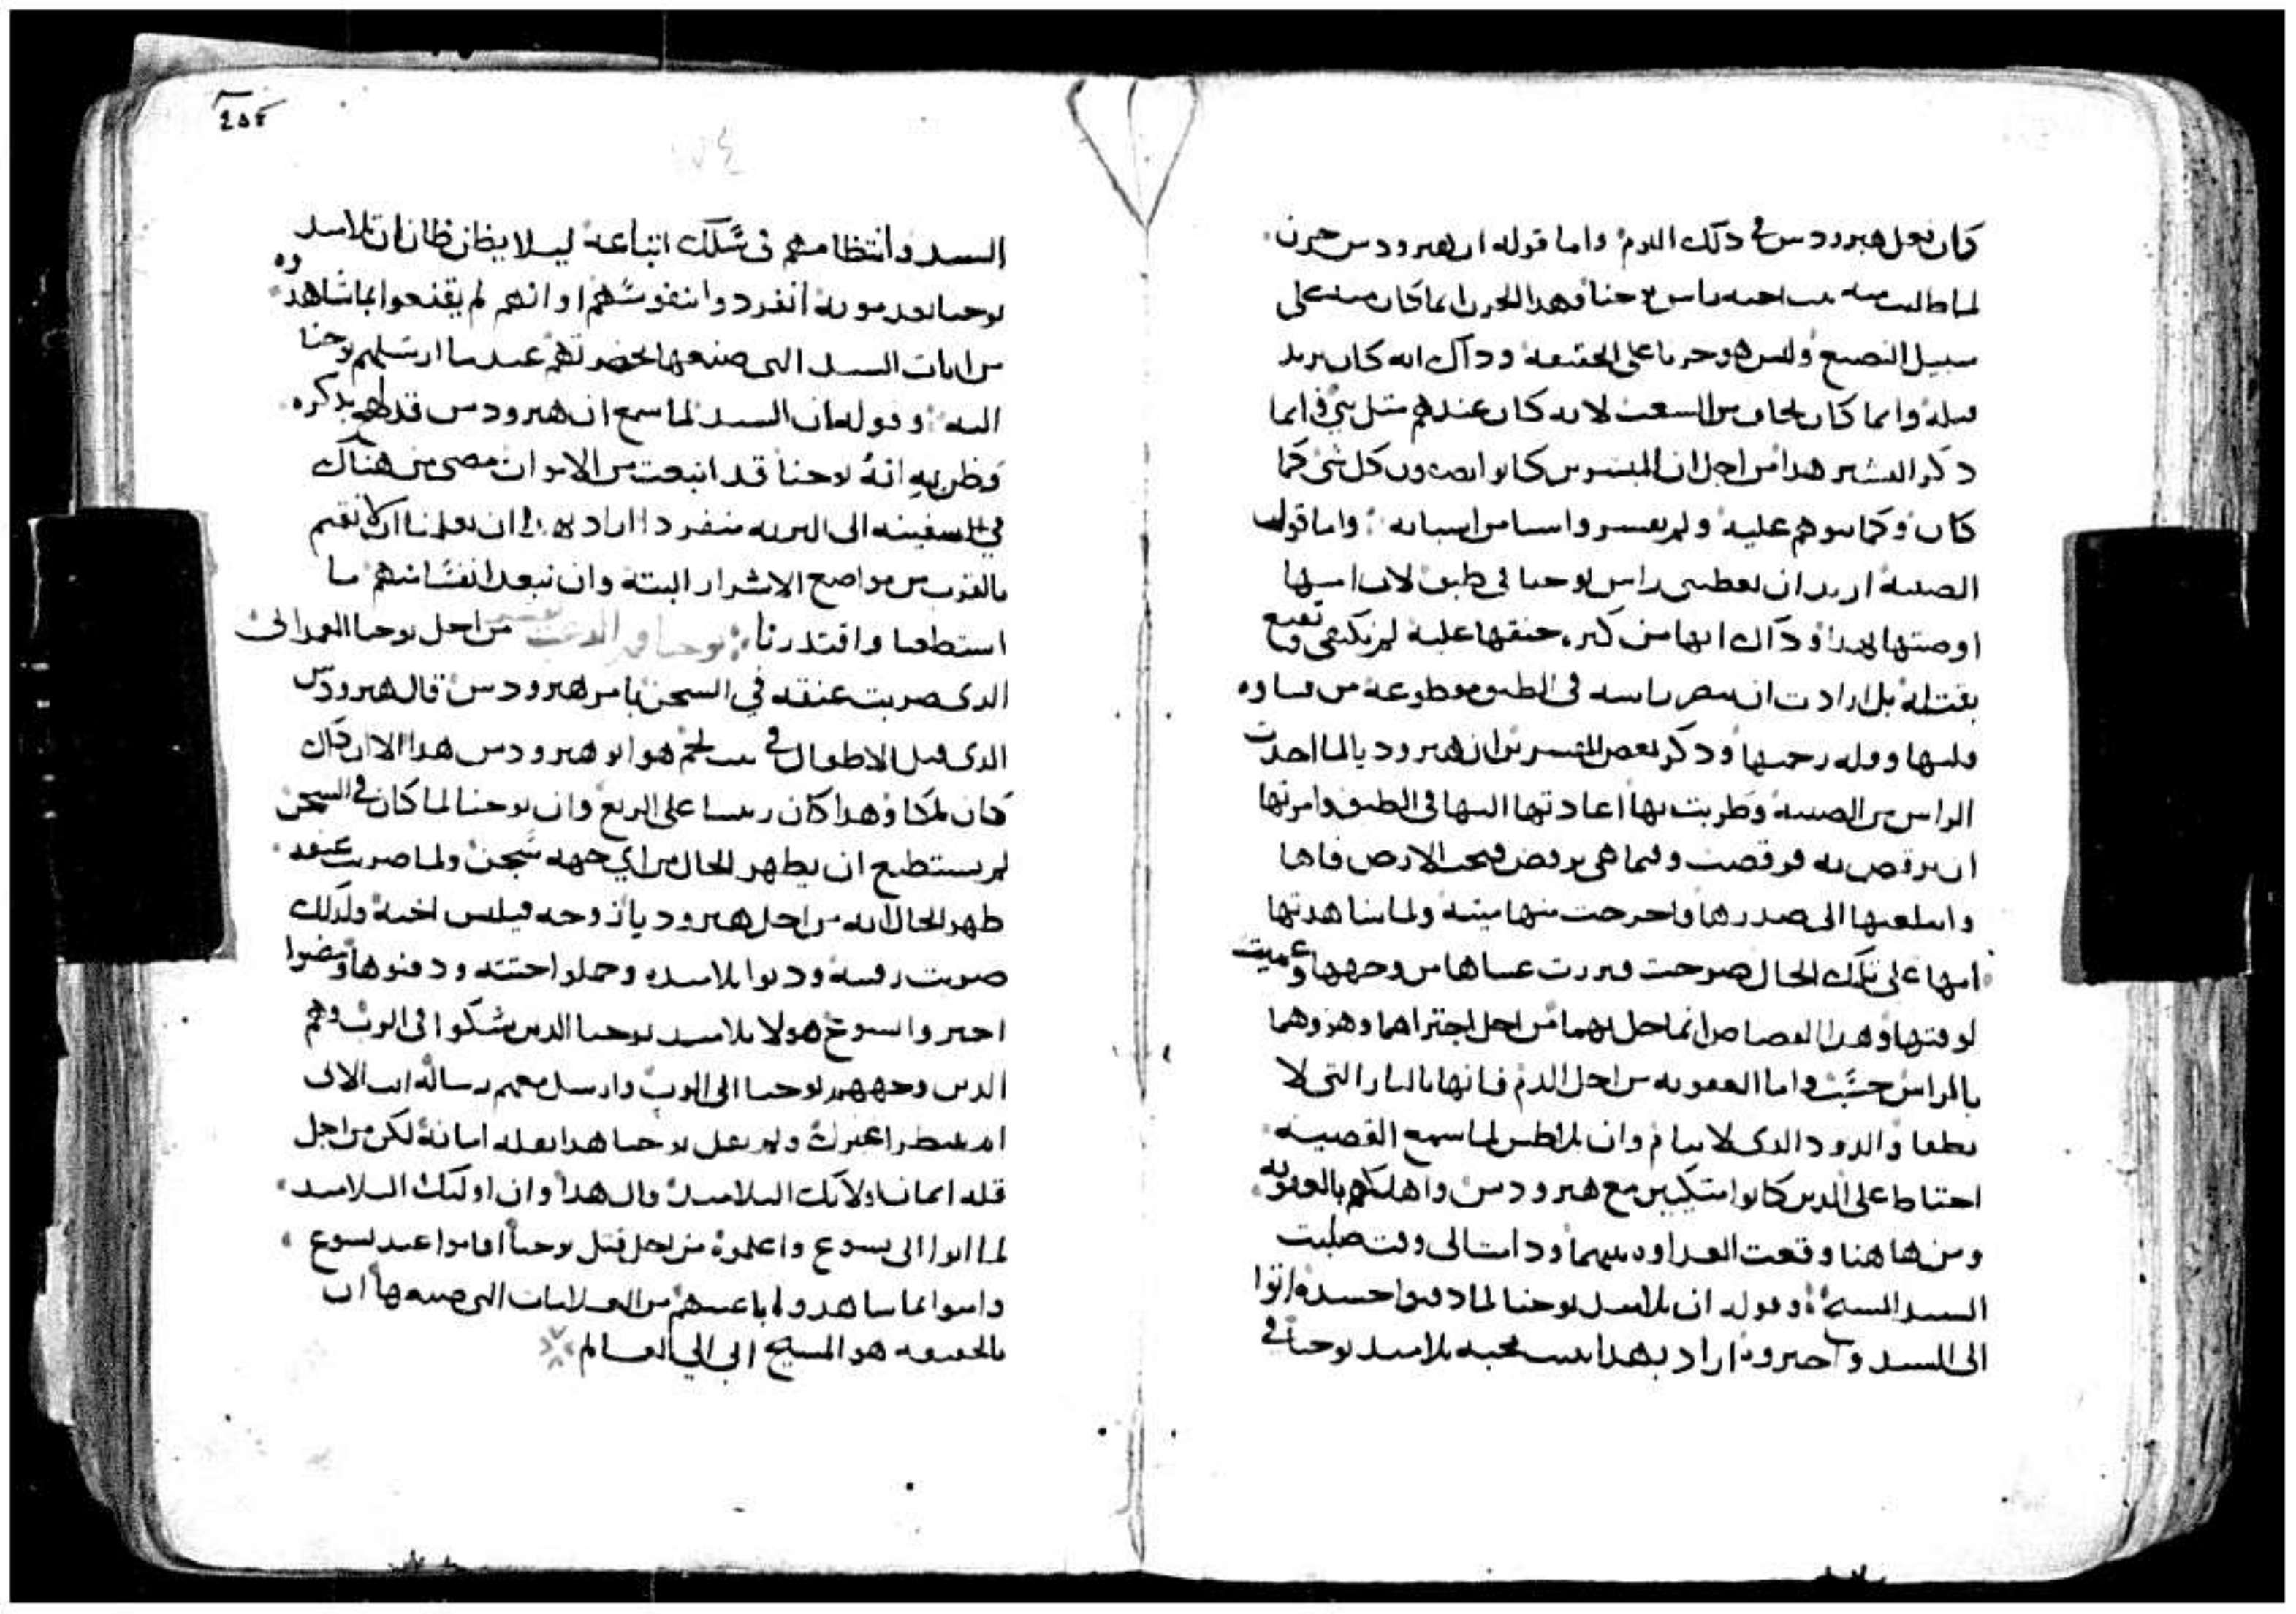 كان فعل هيرودس في ذلك اليوم واما قوله ان هيرودس حزن
لما طالبت منه بنت اخيه براس يوحنا فهدا الحزن انما كان منه على
سبيل التصنع وليس هو حزنا على الحقيقة وداك انه كان يريد
قتله وانما كان يخاف من الشعب لانه كان عندهم مثل نبي وانما
دكر البشير هدا من اجل ان المبشرين كانوا يصفون كل شي كما
كان وكما توهم عليه ولم يغيروا شيا من اسبابه واما قول
الصبية اريد ان تعطيني راس يوحنا في طبق لان امها
اوصتها بهدا وداك انها من كثره حنقها عليه لم تكتفي وتقنع
بقتله بل ارادت ان تبصر راسه في الطبق مقطوعة من قساوه
قلبها وقله رحمتها ودكر بعض المفسرين ان هيروديا لما اخدت
الراس من الصبية وطربت بها اعادتها اليها في الطبق وامرتها
ان ترقص به فرقصت وفيما هي ترقص فتحت الارض فاها
وابتلعتها الى صدرها واخرجت منها ميتة ولما شاهدتها
امها على تلك الحال صرخت فبررت عيناها من وجهها وعميت
لوقتها وهدا القصاص انما حل بهما من اجل اجتراهما وهزوهما
بالراس حسب واما العقوبه من اجل الدم فانها بالنار التي لا
تطفا والدود الدي لا ينام وان بلاطس لما سمع القصيه
احتاط على الدين كانوا متكيين مع هيرودس واهلكهم بالعقوبه
ومن هاهنا وقعت العداوه بينهما ودامت الى وقت صلبت
السيد المسيح وقوله ان تلاميد يوحنا لما دفنوا جسده اتوا
الى السيد واخبروه اراد بهدا يبين محبه تلاميد يوحنا في
٢٥٤
السيد وانتظامهم في سلك اتباعه ليلا يظن ظان ان تلاميد
يوحنا بعد موته انفردوا بنفوسهم او انهم لم يقنعوا بما شاهدوه
من ايات السيد التي صنعها بحضرتهم عندما ارسلهم يوحنا
اليه وقوله ان السيد لما سمع ان هيرودس قد لهج بدكره
وظن به انه يوحنا قد انبعث من الاموات مضى من هناك
في السفينه الى البريه منفردا اراد به ان يعلمنا ان لا نقيم
بالقرب من مواضع الاشرار البتة وان نبعد انفسنا منهم ما
استطعنا واقتدرنا من اجل يوحنا المعمداني
الدي ضربت عنقه في السجن بامر هيرودس قال هيرودس
الدي قتل الاطفال في بيت لحم هو ابو هيرودس هدا الا ان داك
كان ملكا وهدا كان رييسا على الربع وان يوحنا لما كان في السجن
لم يستطع ان يظهر الحال من اي جهه سجن ولما ضربت عنقه
ظهر الحال انه من اجل هيروديا زوجه فيلبس اخيه ولدلك
ضربت رقبته ودنوا تلاميده وحملوا جثته ودفنوها ومضوا
اخبروا يسوع هولا تلاميد يوحنا الدين شكوا في الرب وهم
الدين وجههم يوحنا الى الرب وارسل معهم رساله انت الاتي
ام ننتظر اخر غيرك ولم يفعل يوحنا هدا بقله امانة لكن من اجل
قله ايمان اولايك التلاميد قال هدا وان اوليك التلاميد
لما اتوا الى يسوع واعلموه من اجل قتل يوحنا اقاموا عند يسوع
وامنوا بما شاهدوه باعينهم من العلامات التي صنعها ان
بالحقيقه هو المسيح اتى الي العالم